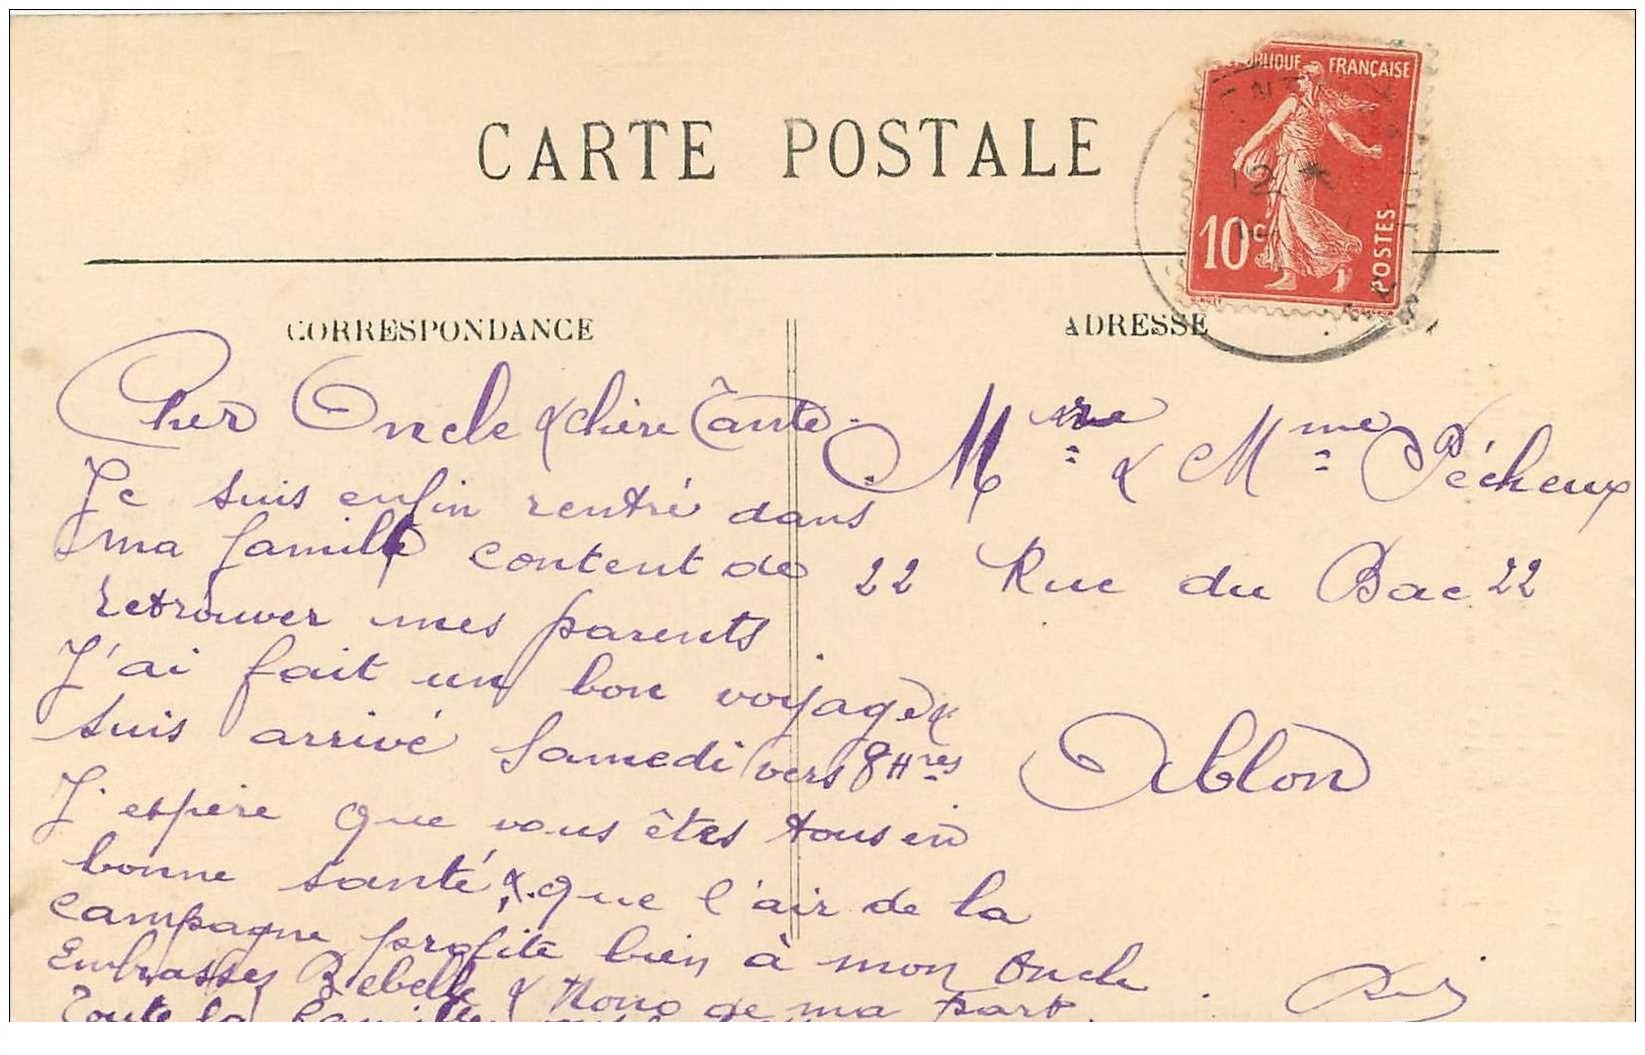 CARTE POSTALE
RÉPUBLIQUE FRANÇAISE
10c
POSTES
12 *
CORRESPONDANCE
Cher Oncle & chère Tante.
Je suis enfin rentré dans
ma famille content de
retrouver mes parents.
J'ai fait un bon voyage &
suis arrivé Samedi vers 8Hres
J'espère que vous êtes tous en
bonne santé, & que l'air de la
campagne profite bien à mon Oncle.
Embrassez Rebelle & Nono de ma part.
Toute la famille
ADRESSE
Mr & Mme Pécheux
22 Rue du Bac 22
Ablon